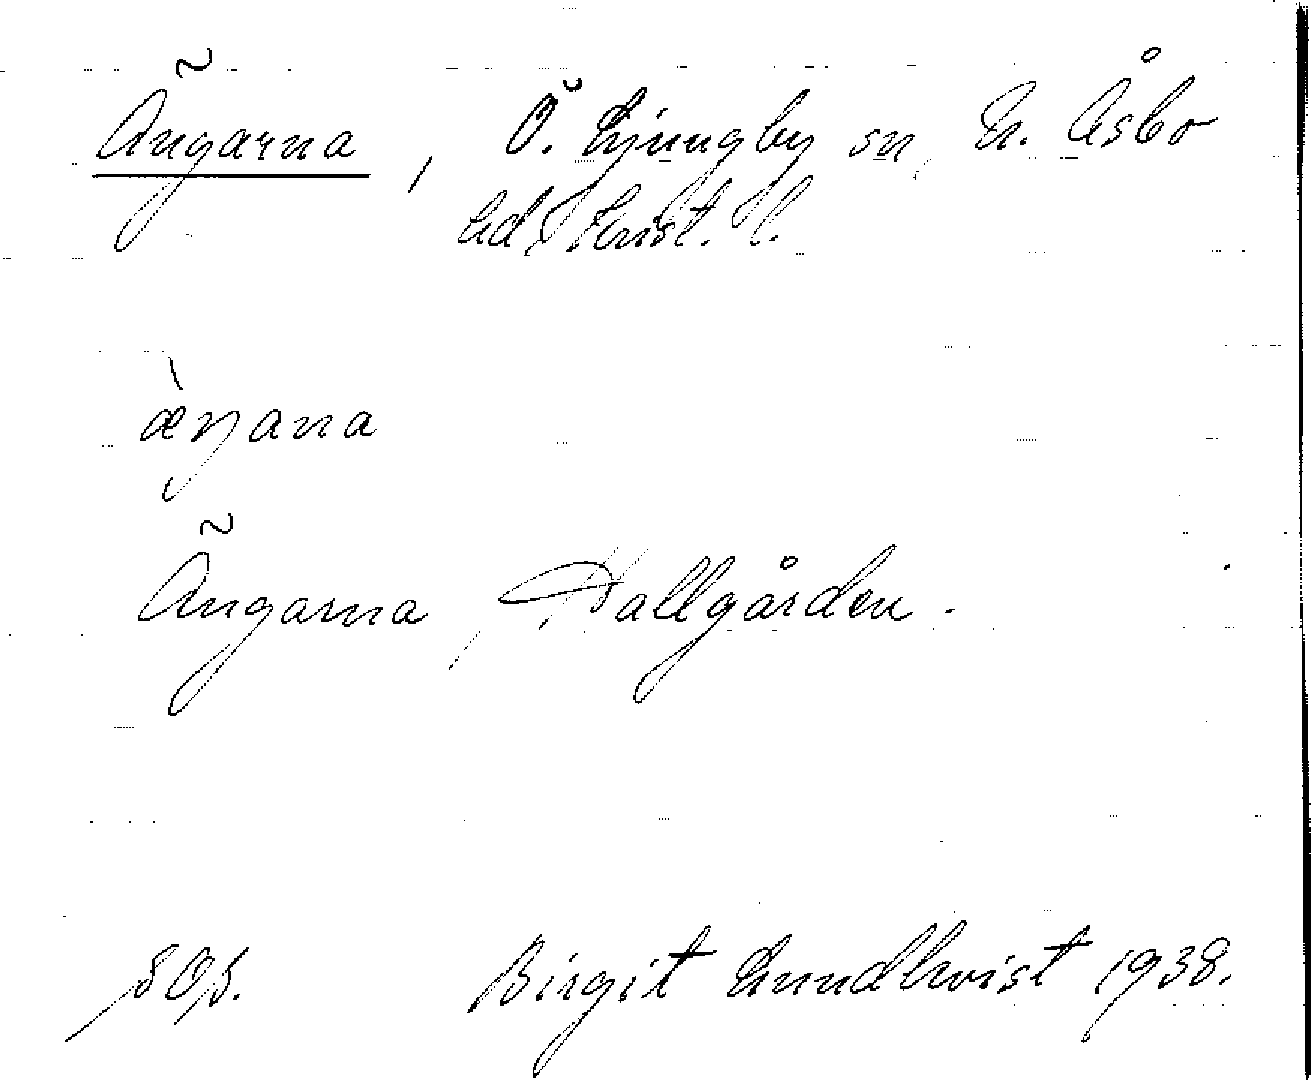 Ängarna, Ö. Ljungby sn, N. Åsbo
hd, Krist. l.
æ̀ŋana
Ängarna, Hallgården.
Birgit Lundkvist 1938.